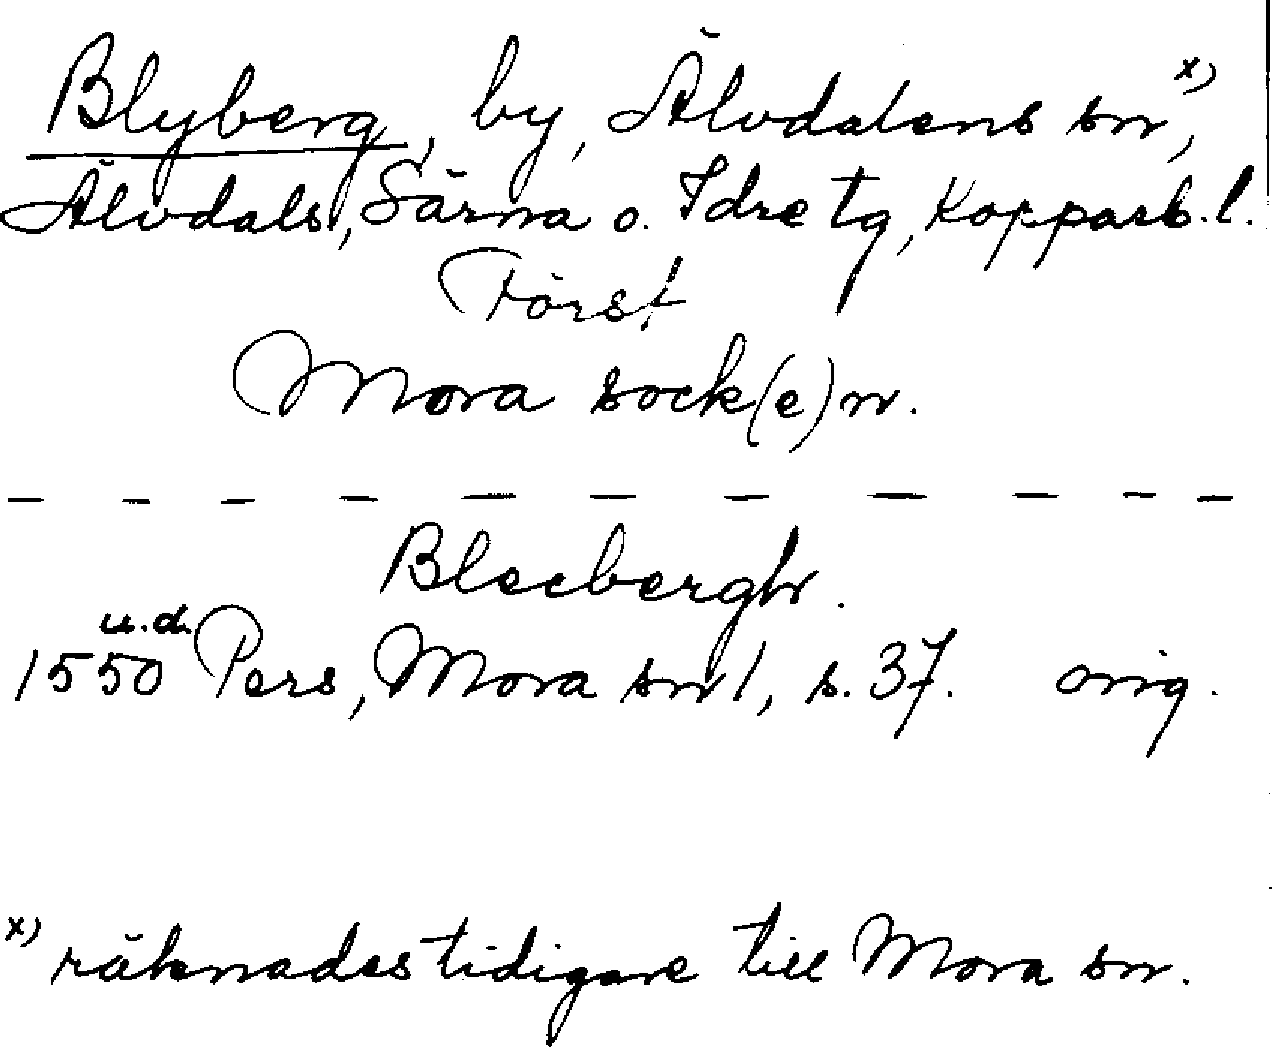 Blyberg, by, Älvdalens sn x),
Älvdals, Särna o. Idre tg, Kopparb. l.
Först
Mora sock(e)n.
— — — — — — — — — — —
Bleebergh.
u.d.
1550 Pers, Mora sn 1, s. 37. orig.
x) räknades tidigare till Mora sn.